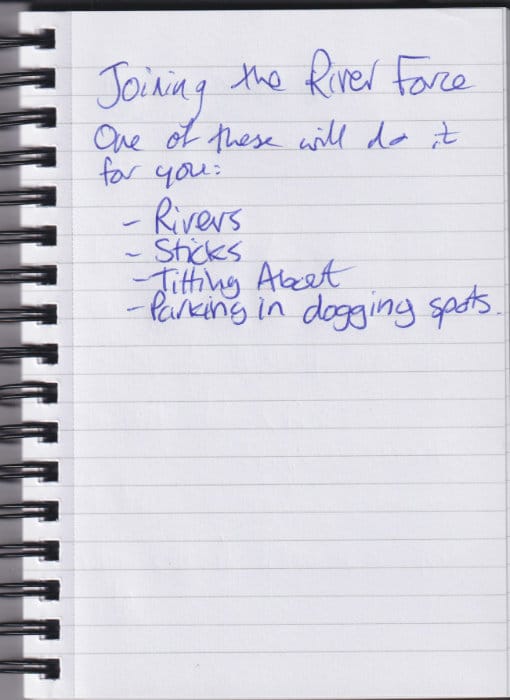 Joining the River Force
One of these will do it
for you:
- Rivers
- Sticks
- Titting About
- Parking in dogging spots.